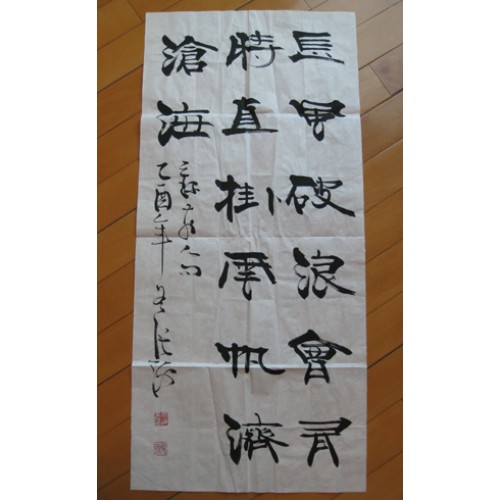 長風破浪會有
時直掛雲帆濟
滄海
乙酉年